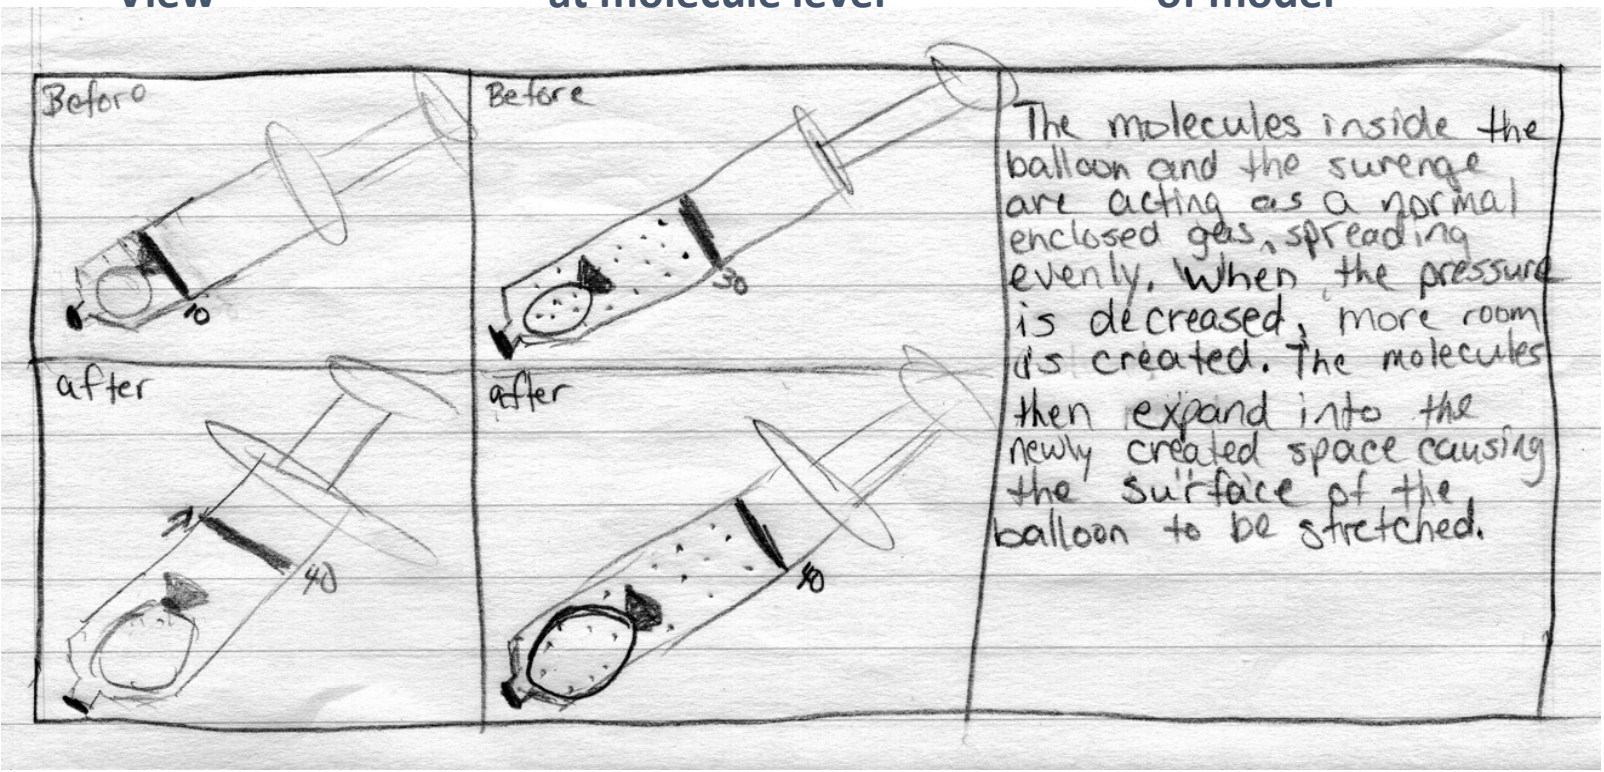 View
at molecule level
of model
Before
10
Before
30
after
40
after
40
The molecules inside the
balloon and the surenge
are acting as a normal
enclosed gas, spreading
evenly. When the pressure
is decreased, more room
is created. The molecules
then expand into the
newly created space causing
the surface of the
balloon to be stretched.